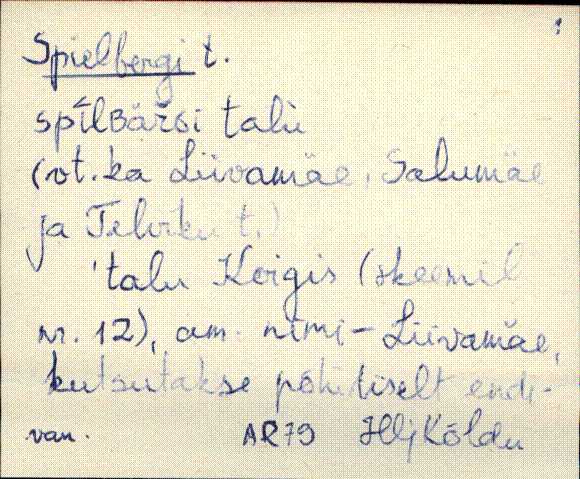 Spielbergi t.
spīlʙär̄ɢi talu
(vt. ka Liivamäe, Salumäe
ja Tehvku t.)
'talu Koigis (skeemil
nr. 12), am. nimi - Liivamäe,
kutsutakse põhiliselt endi-
van. AR79 HljKõldu